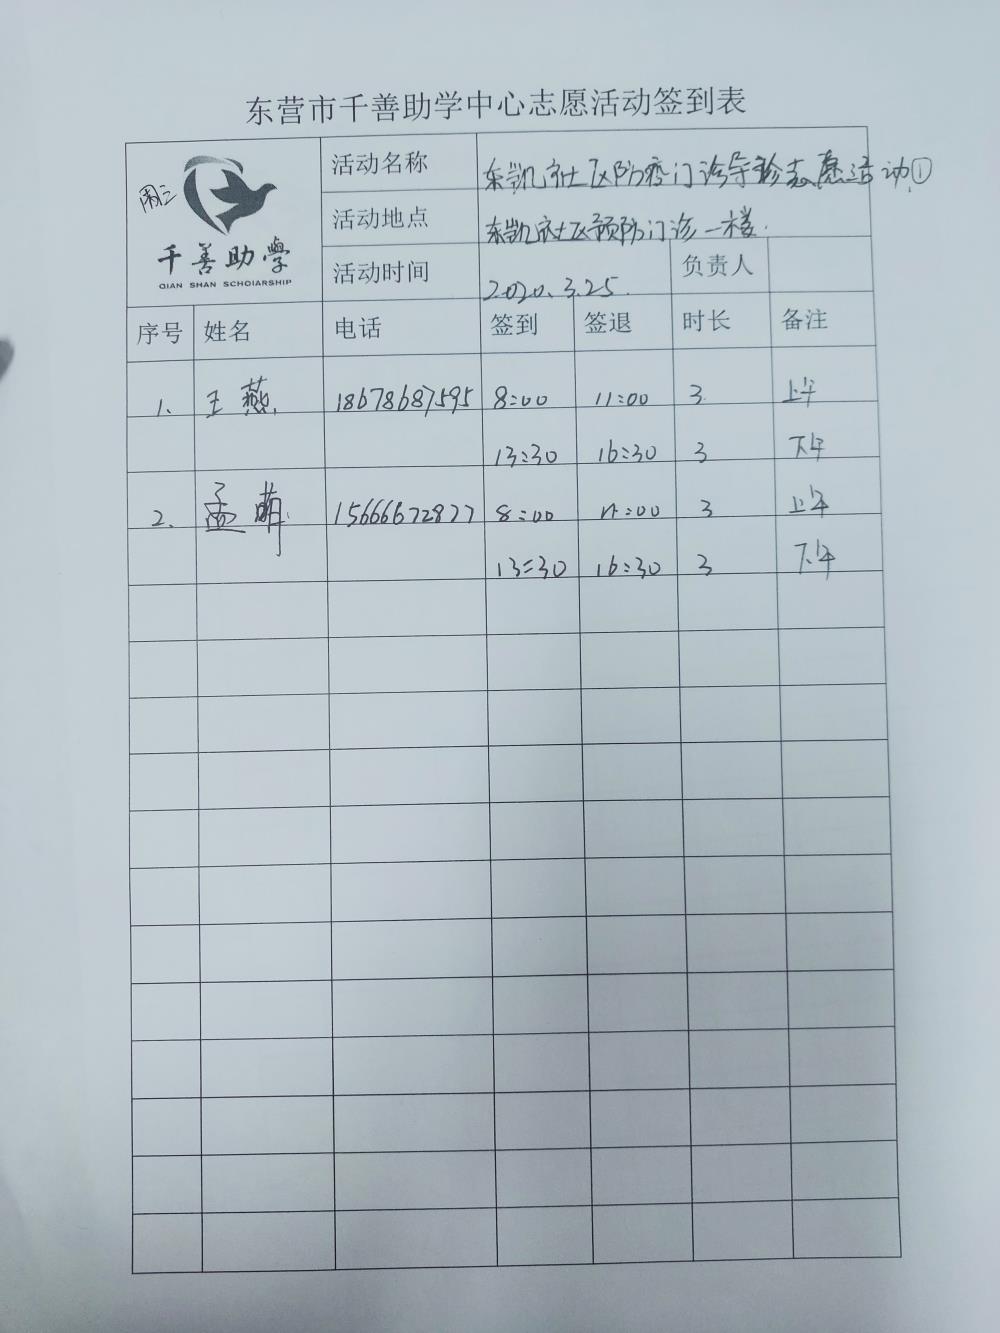 东营市千善助学中心志愿活动签到表
周三
千善助學
QIAN SHAN SCHOIARSHIP
活动名称 东凯社区防疫门诊导诊志愿活动①
活动地点 东凯社区预防门诊一楼.
活动时间 2020.3.25. 负责人
序号 姓名 电话 签到 签退 时长 备注
1. 王燕. 18678687595 8:00 11:00 3 上午
13:30 16:30 3 下午
2. 孟萌. 15666672877 8:00 11:00 3 上午
13:30 16:30 3 下午